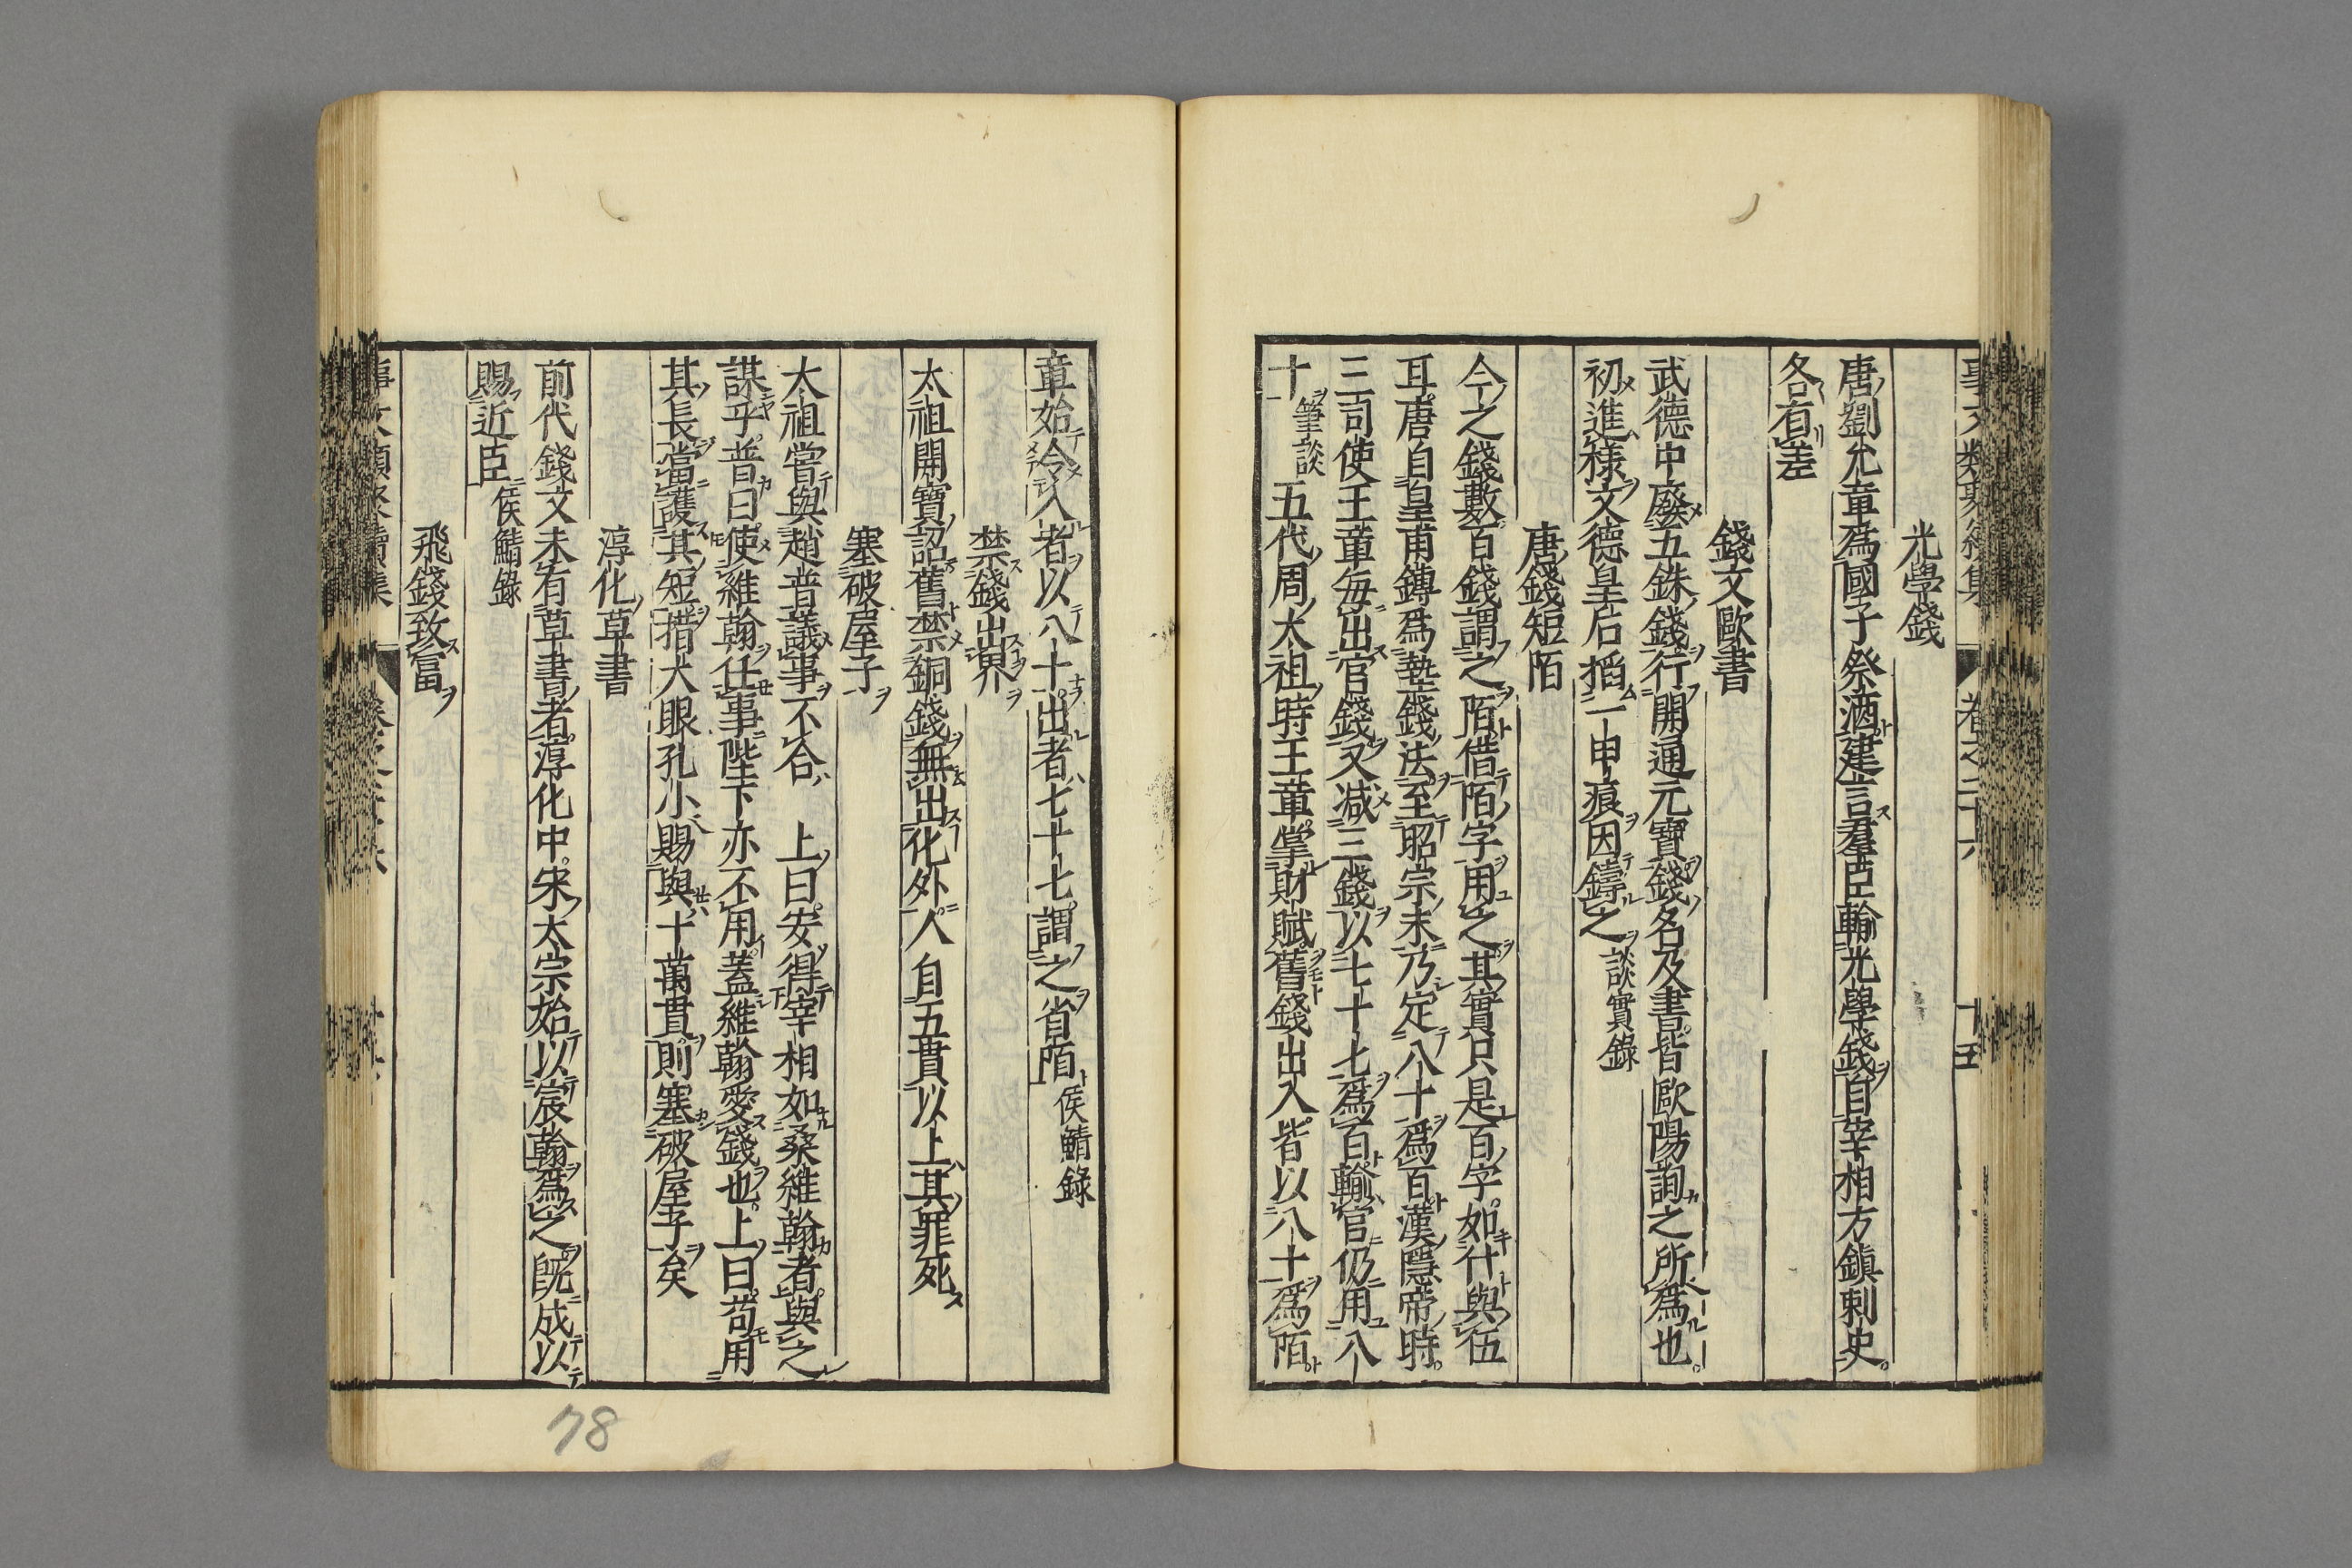 光學錢
唐劉允章爲國子祭酒建言羣臣輸光學錢自宰相方鎮刺史
各有差
錢文歐書
武德中廢五銖錢行開通元寶錢名及書皆歐陽詢之所爲也
初進様文德皇后搯一甲痕因鑄之談實錄
唐錢短陌
今之錢數百錢謂之陌借陌字用之其實只是百字如什與伍
耳唐自皇甫鎛爲墊錢法至昭宗末乃定八十爲百漢隱帝時
三司使王章每出官錢又減三錢以七十七爲百輸官仍用八
十筆談五代周太祖時王章掌財賦舊錢出入皆以八十爲陌
章始令入者以八十出者七十七謂之省陌侯鯖錄
禁錢出界
太祖開寶詔舊禁銅錢無出化外人自五貫以上其罪死
塞破屋子
太祖嘗與趙普議事不合 上曰安得宰相如桑維翰者與之
謀乎普曰使維翰任事陛下亦不用蓋維翰愛錢也上曰苟用
其長當護其短措大眼孔小賜與十萬貫則塞破屋子矣
淳化草書
前代錢文未有草書者淳化中宋太宗始以宸翰爲之既成以
賜近臣侯鯖錄
飛錢致富
78